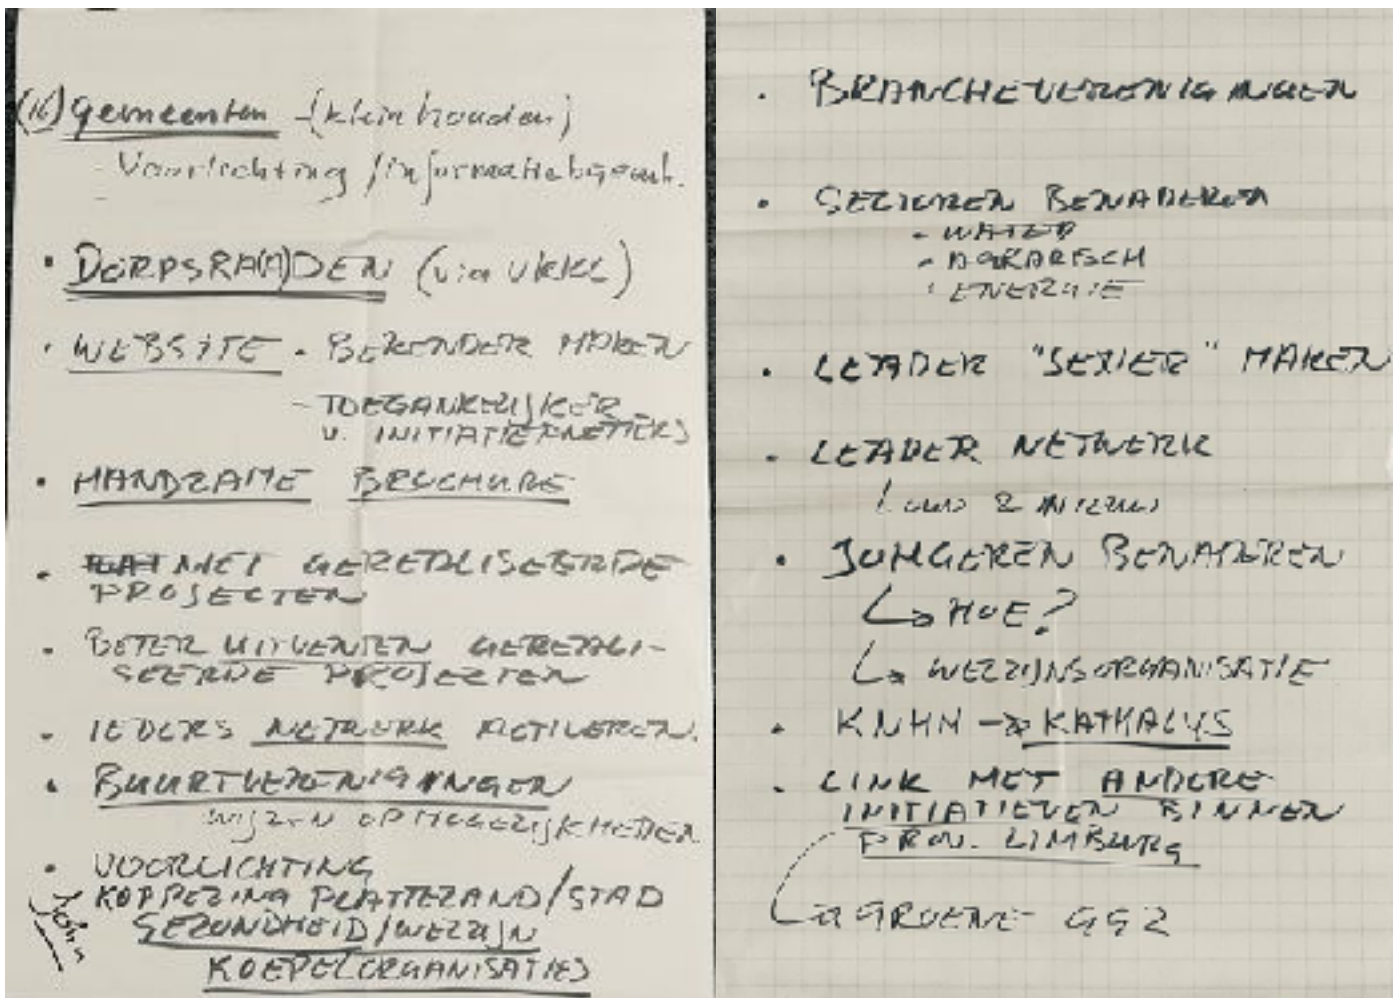 (16) gemeenten - (klein houden)
- Voorlichting / informatiebijeenk.
• DORPSRA(A)DEN (via VKKL)
• WEBSITE - BEKENDER MAKEN
- TOEGANKELIJKER
V. INITIATIEFNEMERS
• HANDZAME BROCHURE
• MET GEREALISEERDE
PROJECTEN
• BETER UITVENTEN GEREALI-
SEERDE PROJECTEN
• IEDERS NETWERK ACTIVEREN.
• BUURTVERENIGINGEN
WIJZEN OP MOGELIJKHEDEN
• VOORLICHTING
KOPPELING PLATTELAND/STAD
John
GEZONDHEID/WELZIJN
KOEPELORGANISATIES
• BRANCHEVERENIGINGEN
• SECTOREN BENADEREN
- WATER
- AGRARISCH
- ENERGIE
• LEADER "SEXIER" MAKEN
• LEADER NETWERK
OUD & NIEUW
• JONGEREN BENADEREN
↳ HOE?
↳ WELZIJNSORGANISATIE
• KNHM → KATHALYS
• LINK MET ANDERE
INITIATIEVEN BINNEN
PROV. LIMBURG
→ GROENE GGZ